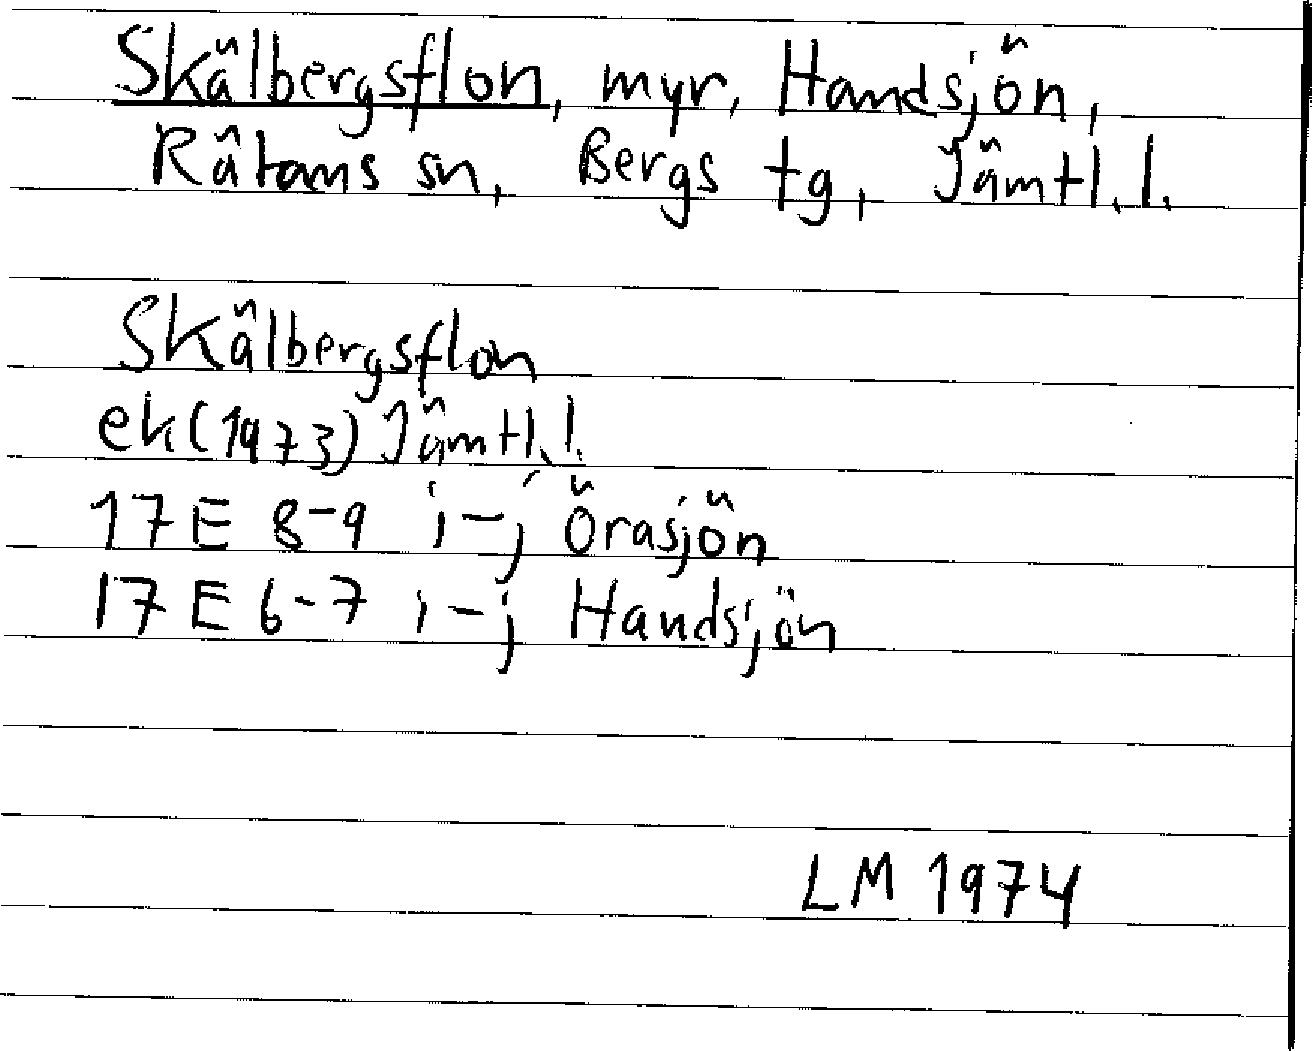 Skälbergsflon, myr, Handsjön,
Rätans sn, Bergs tg, Jämtl. l.
Skälbergsflon
ek (1973) Jämtl. l.
17 E 8-9 i-j Örasjön
17 E 6-7 i-j Handsjön
LM 1974